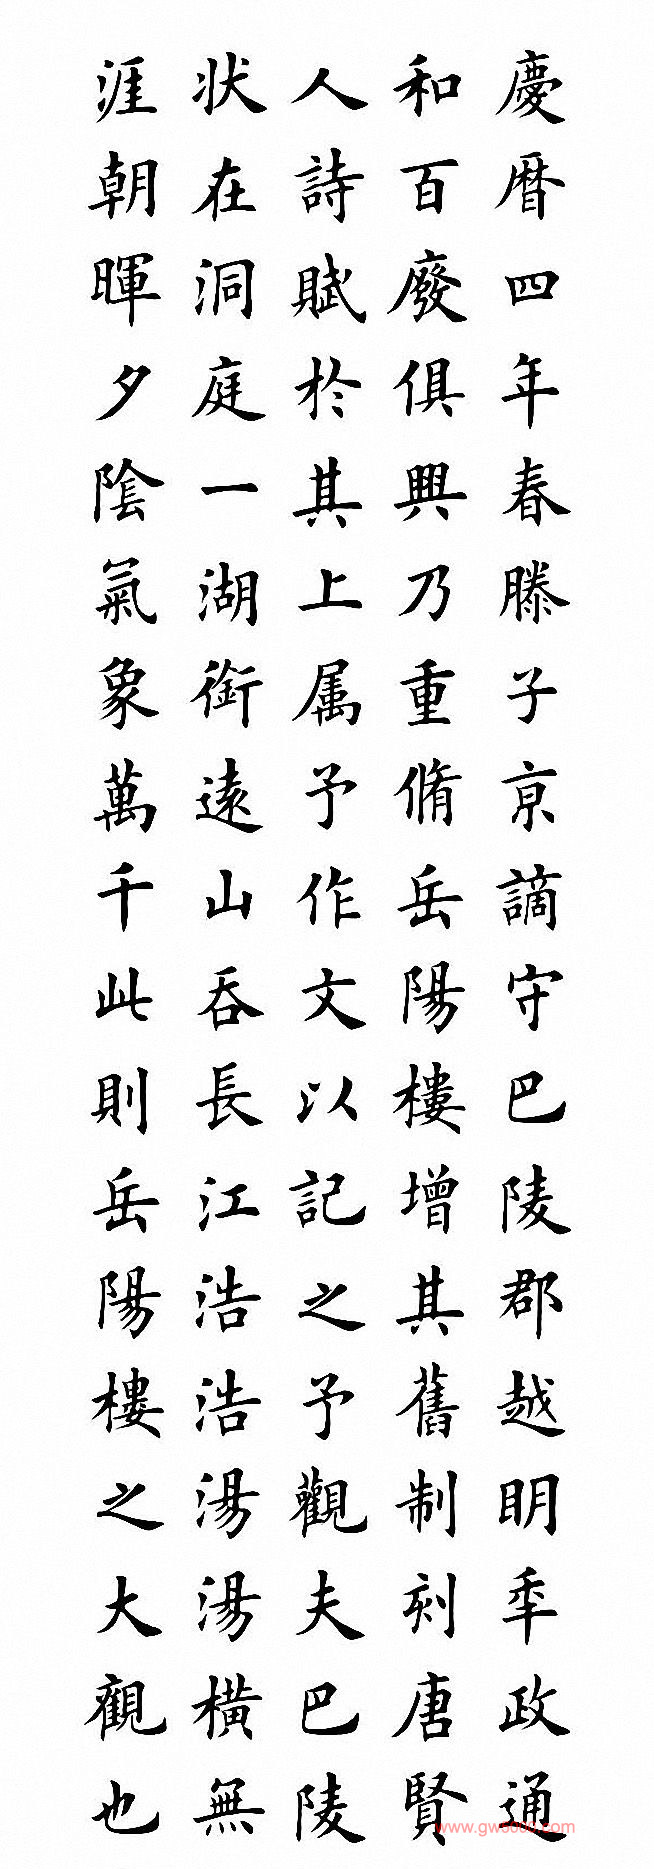 慶曆四年春滕子京謫守巴陵郡越明年政通
和百廢俱興乃重脩岳陽樓增其舊制刻唐賢
人詩賦於其上属予作文以記之予觀夫巴陵
状在洞庭一湖銜遠山吞長江浩浩湯湯橫無
涯朝暉夕陰氣象萬千此則岳陽樓之大觀也
www.gw5000.com